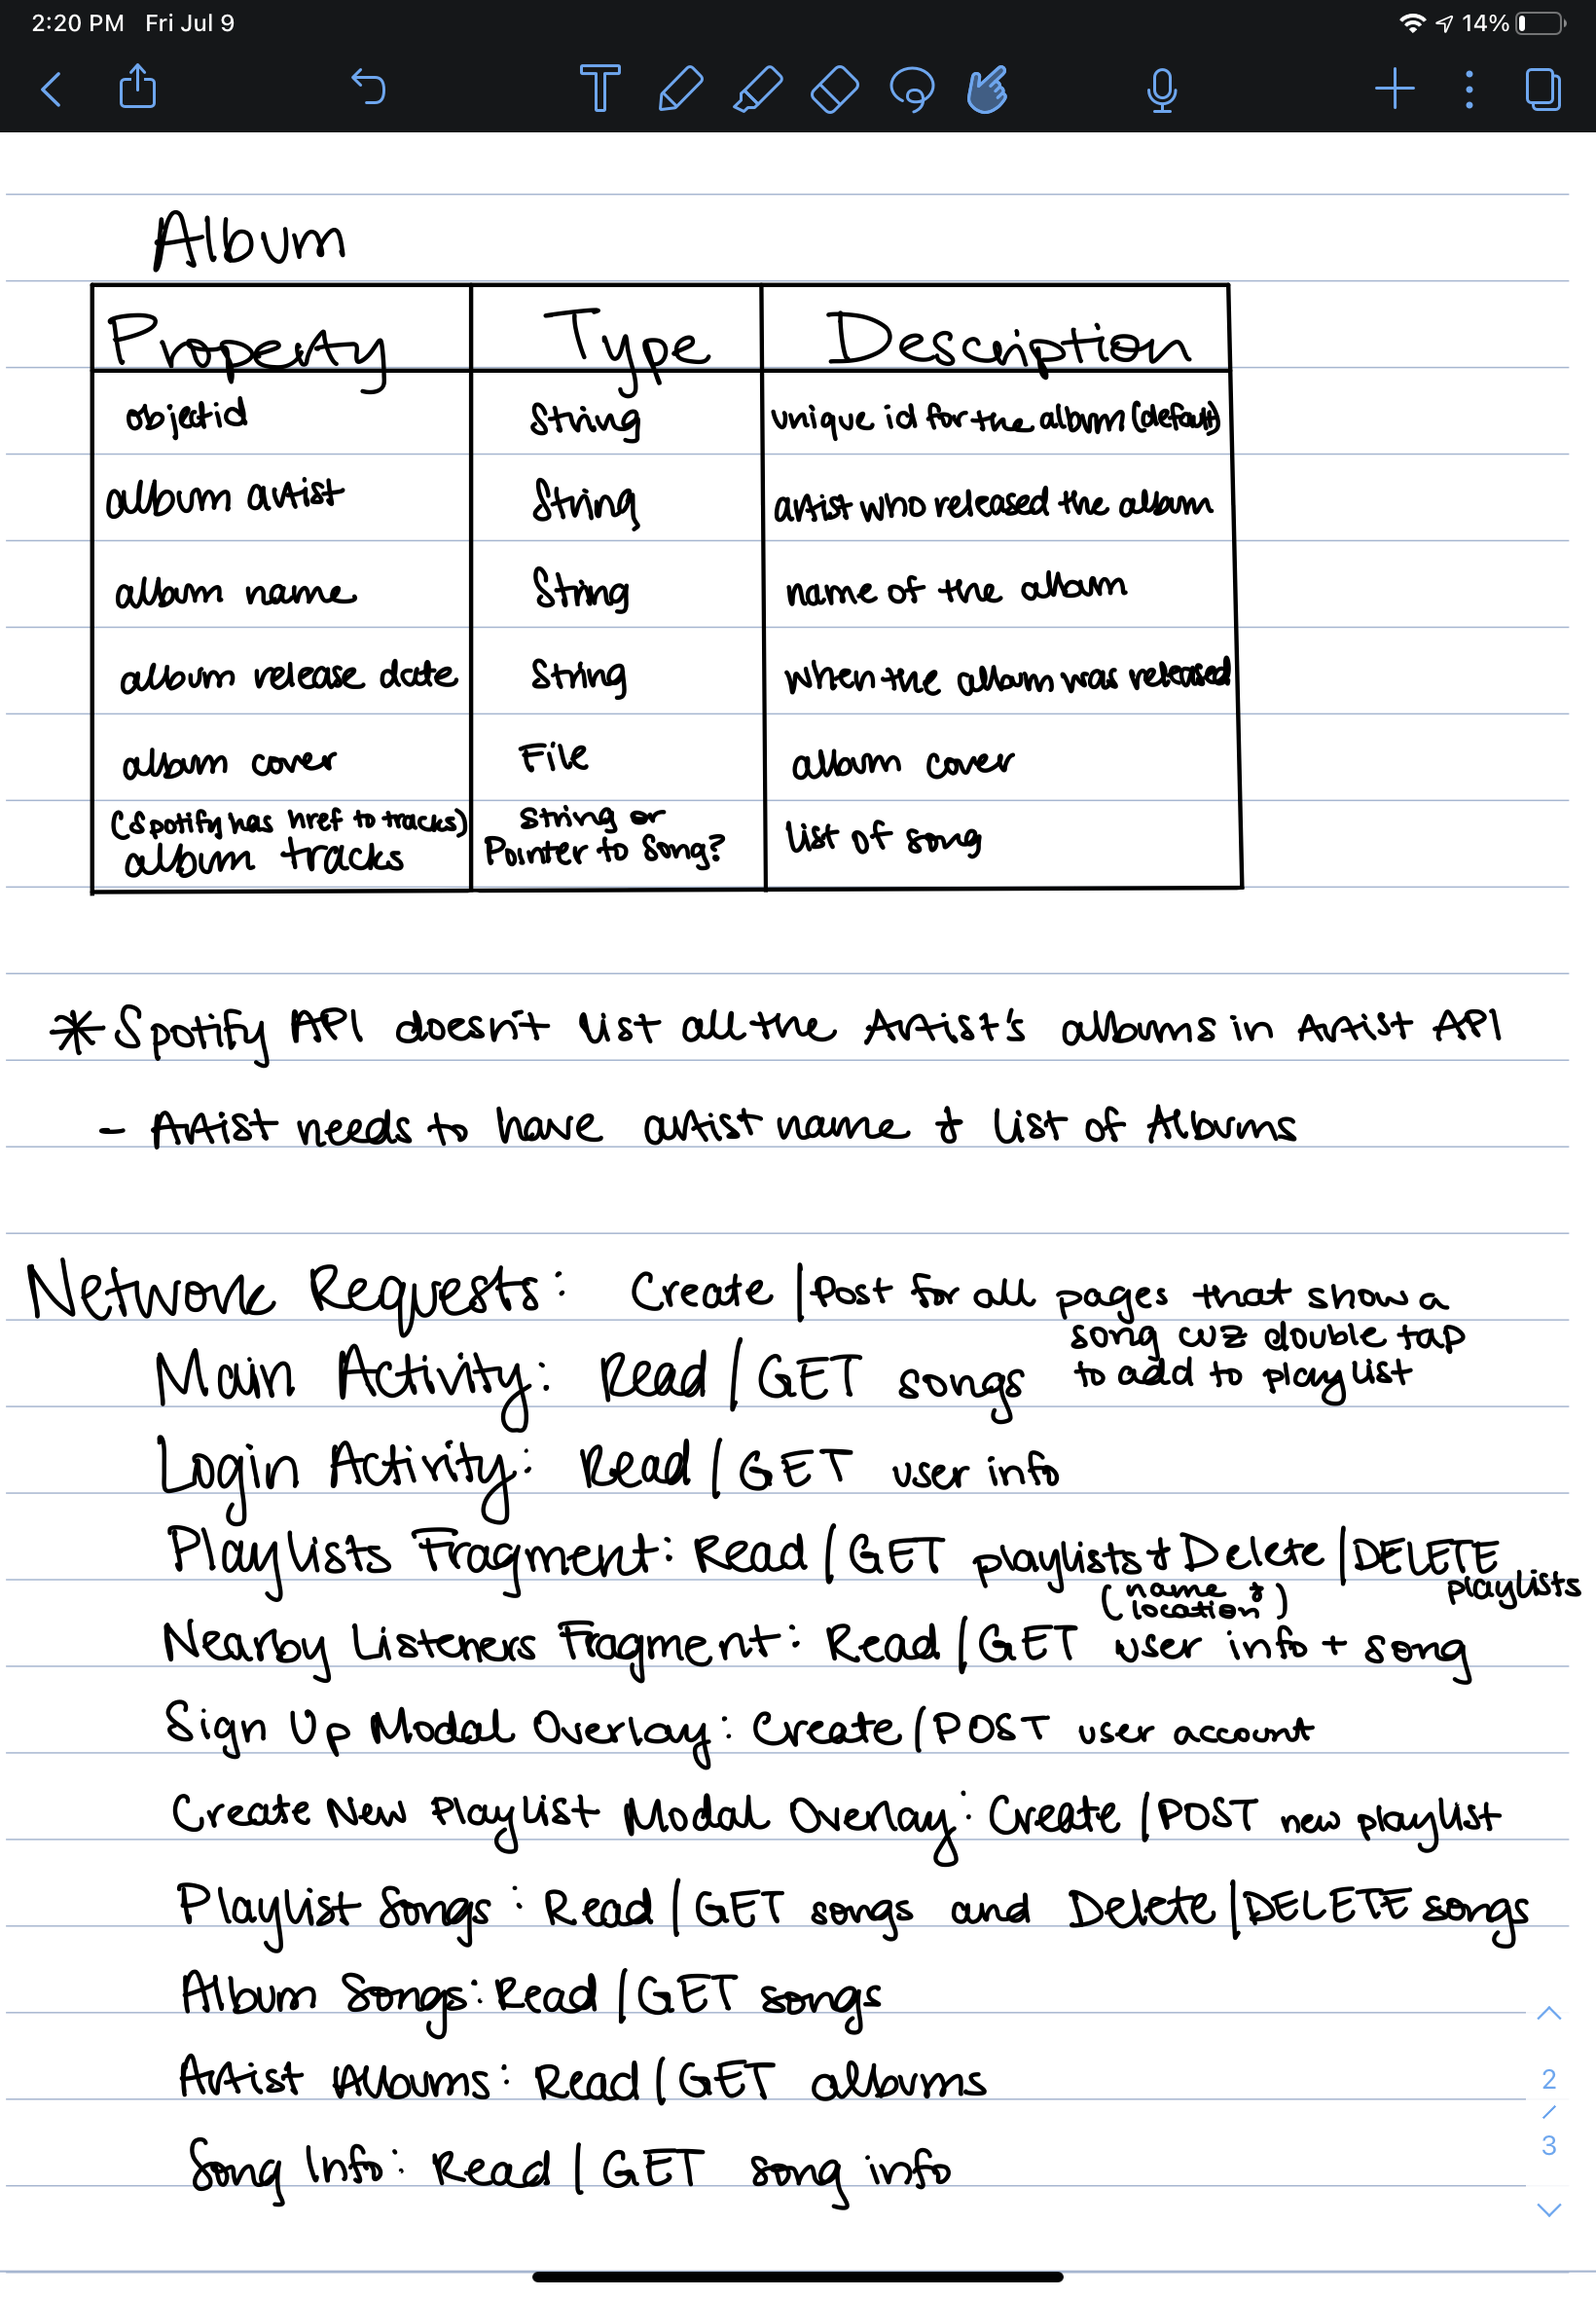 2:20 PM Fri Jul 9 14%
Album
Property Type Description
objectid String unique id for the album (default)
album artist String artist who released the album
album name String name of the album
album release date String when the album was released
album cover File album cover
(Spotify has href to tracks) String or
album tracks Pointer to Song? list of song
* Spotify API doesn't list all the Artist's albums in Artist API
- Artist needs to have artist name & list of Albums
Network Requests: Create | Post for all pages that show a
song cuz double tap
to add to playlist
Main Activity: Read / GET songs
Login Activity: Read / GET user info
Playlists Fragment: Read / GET playlists & Delete / DELETE
playlists
(name &
location)
Nearby Listeners Fragment: Read / GET user info + song
Sign Up Modal Overlay: Create / POST user account
Create New Playlist Modal Overlay: Create / POST new playlist
Playlist Songs: Read / GET songs and Delete / DELETE songs
Album Songs: Read / GET songs
Artist Albums: Read / GET albums
Song Info: Read / GET song info
2
/
3